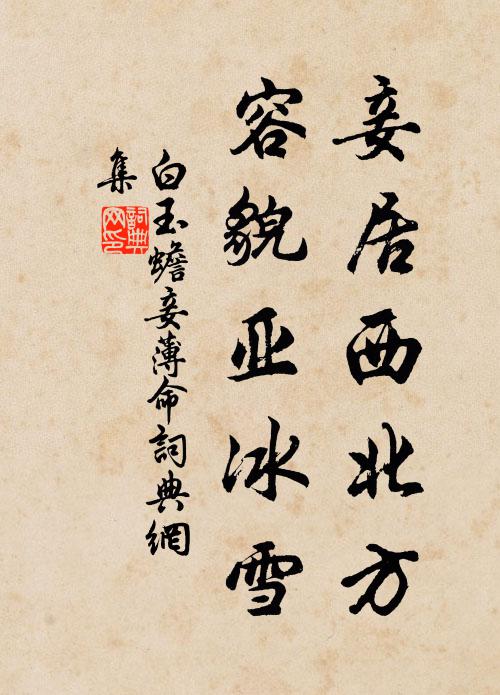 妾居西北方
容貌亚冰雪
白玉蟾妾薄命詞典網
集
詞典网印